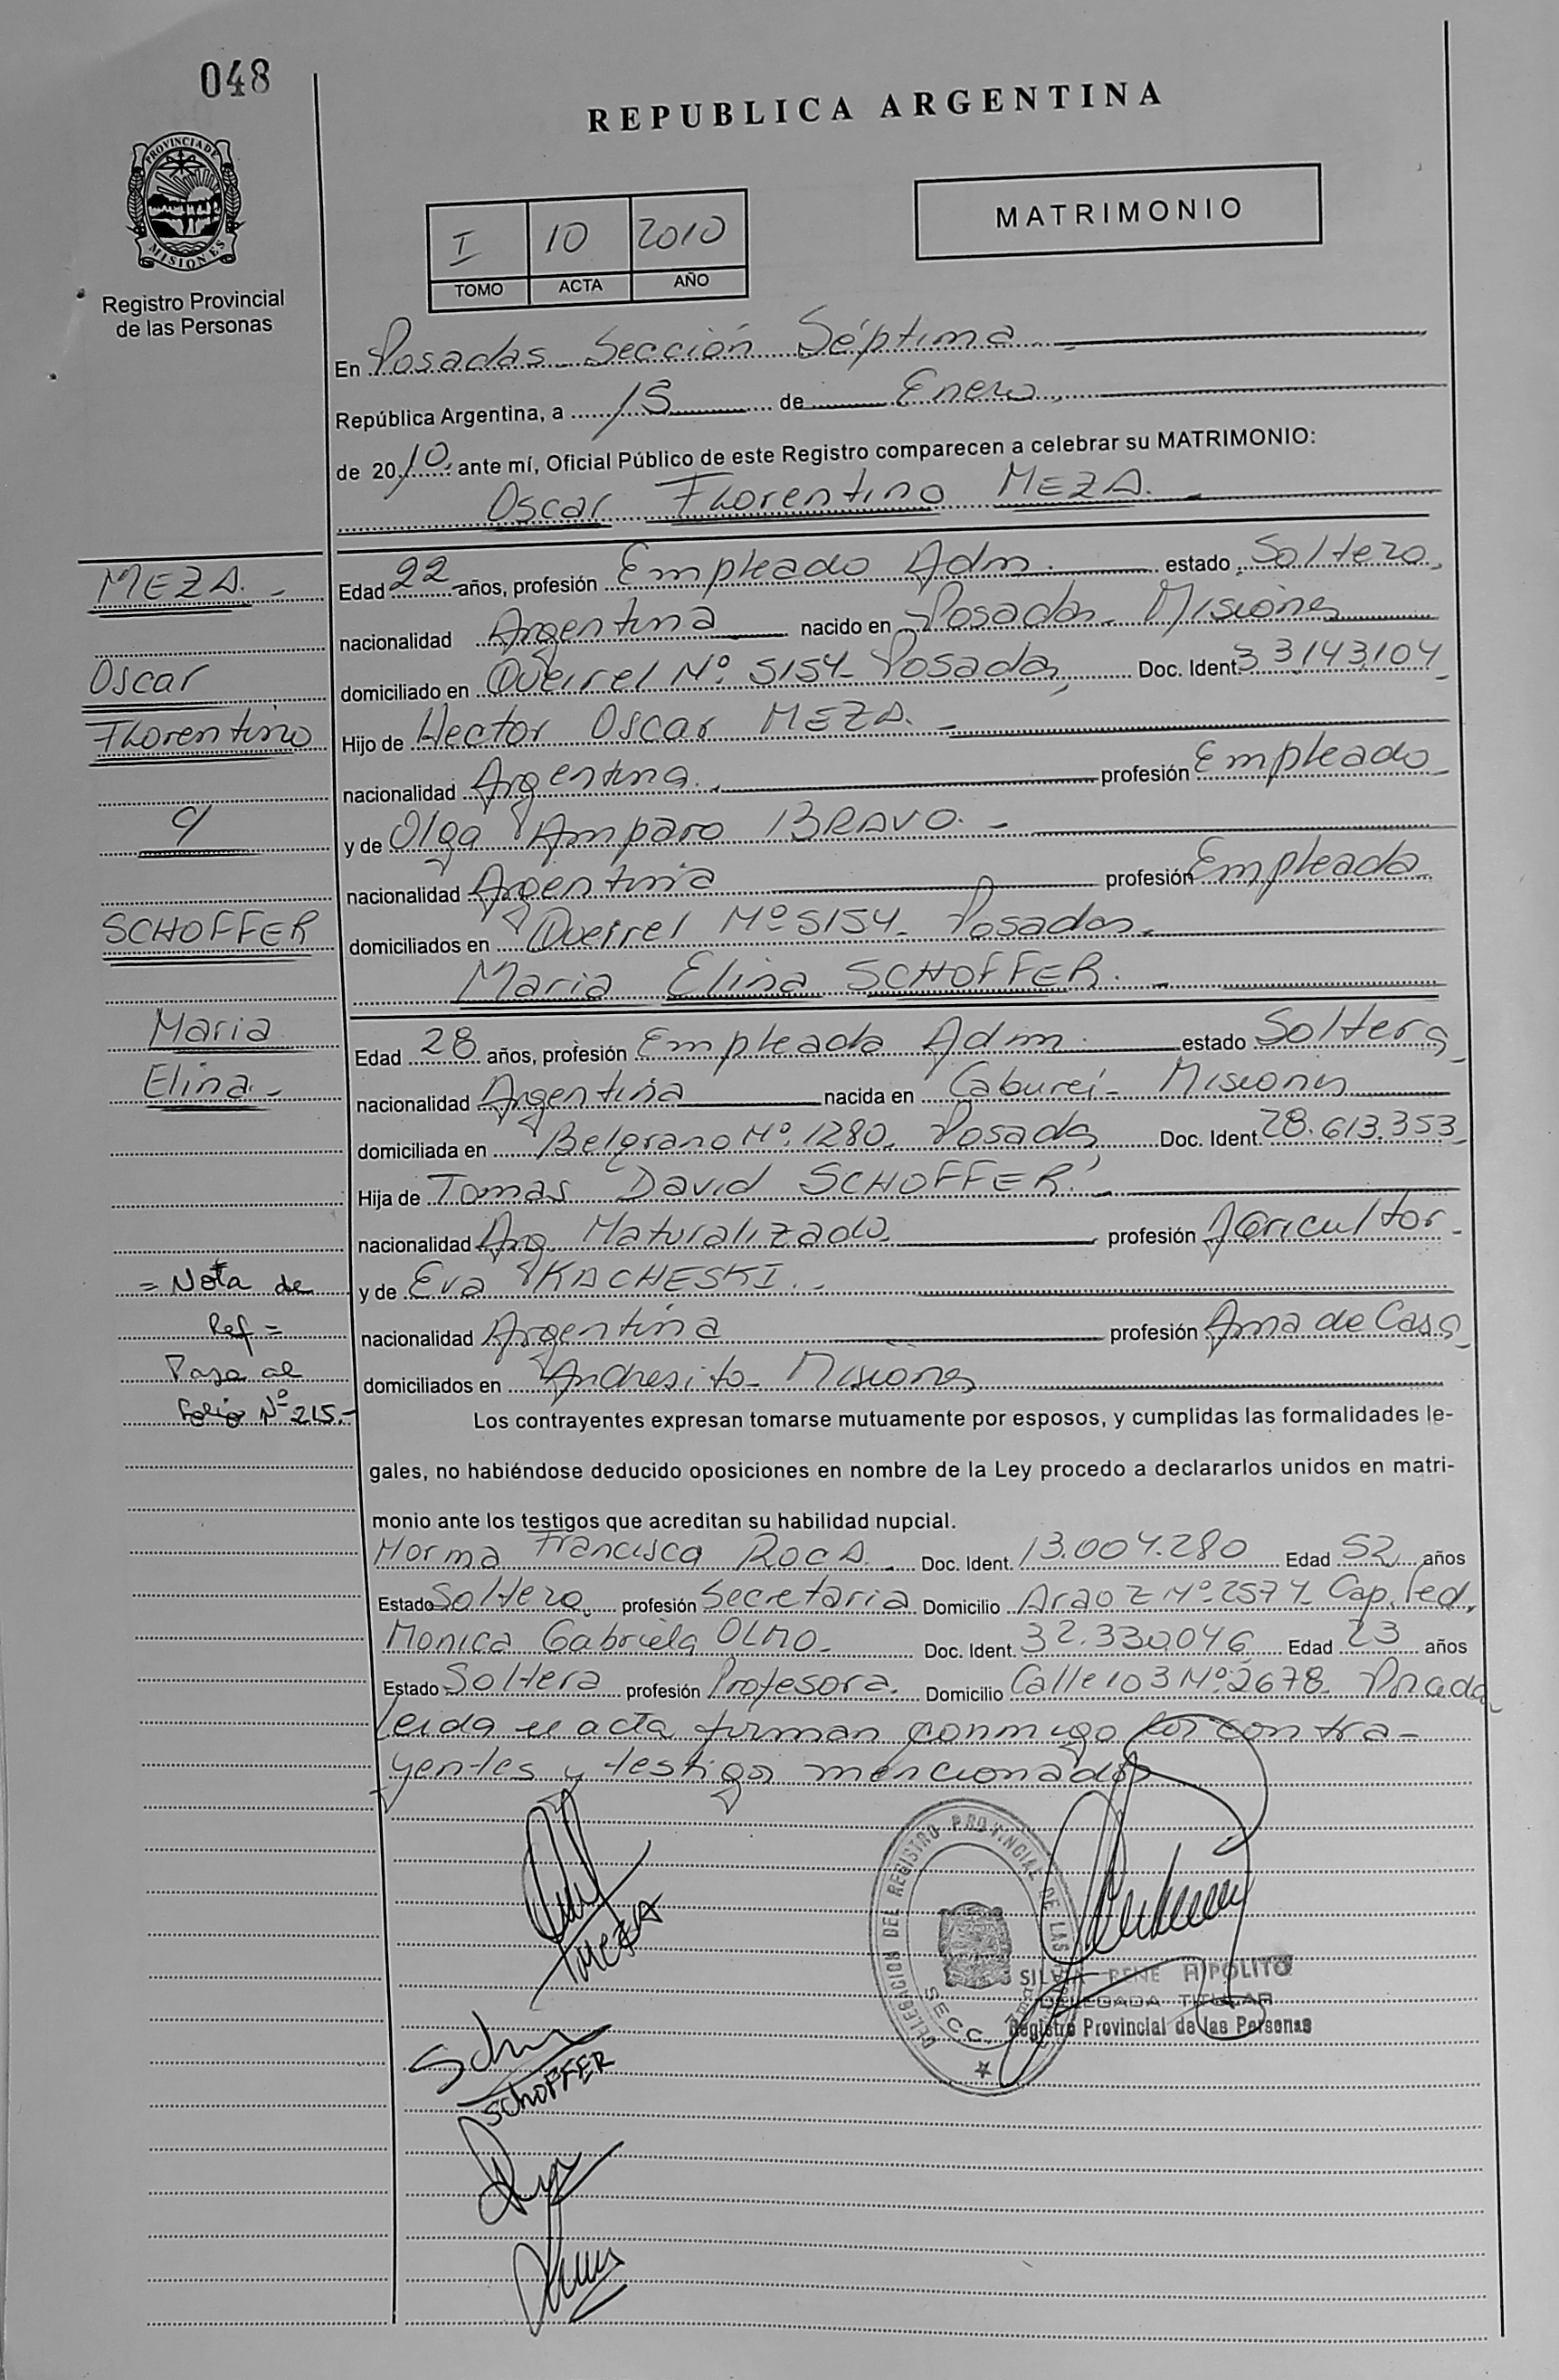 048
REPUBLICA ARGENTINA
PROVINCIA DE
MISIONES
Registro Provincial
de las Personas
I 10 2010
TOMO ACTA AÑO
MATRIMONIO
En Posadas Sección Séptima
República Argentina, a 15 de Enero
de 2010 ante mí, Oficial Público de este Registro comparecen a celebrar su MATRIMONIO:
Oscar Florentino MEZA.
MEZA.- Edad 22 años, profesión Empleado Adm. estado Soltero
nacionalidad Argentina nacido en Posadas Misiones
Oscar domiciliado en Queirel Nº 5154 Posadas Doc. Ident 33143104
Florentino Hijo de Hector Oscar MEZA.
nacionalidad Argentina. profesión Empleado
c/ y de Olga Amparo BRAVO.
nacionalidad Argentina profesión Empleada
SCHOFFER domiciliados en Queirel Nº 5154 Posadas.
Maria Elina SCHOFFER.
Maria Edad 28 años, profesión Empleada Adm. estado Soltera
Elina.- nacionalidad Argentina nacida en Caburei- Misiones
domiciliada en Belgrano Nº 1280. Posadas Doc. Ident. 28.613.353
Hija de Tomas David SCHOFFER.
nacionalidad Arg. Naturalizado profesión Agricultor
= Nota de y de Eva KACHESKI.
Ref = nacionalidad Argentina profesión Ama de Casa
Pasa al domiciliados en Andresito- Misiones
Folio Nº 215.-
Los contrayentes expresan tomarse mutuamente por esposos, y cumplidas las formalidades le-
gales, no habiéndose deducido oposiciones en nombre de la Ley procedo a declararlos unidos en matri-
monio ante los testigos que acreditan su habilidad nupcial.
Norma Francisca ROCA. Doc. Ident. 13.004.280 Edad 52 años
Estado Soltera profesión Secretaria Domicilio Araoz Nº 2574 Cap. Fed.
Monica Gabriela OLMO. Doc. Ident. 32.330.046 Edad 23 años
Estado Soltera profesión Profesora. Domicilio Calle 103 Nº 2678 Posadas
leida el acta firman conmigo los contra-
yentes y testigos mencionados
MEZA
SCHOFFER
DELEGACION DEL REGISTRO PROVINCIAL DE LAS
SECC.
SILVIA RENE HIPOLITO
DELEGADA TITULAR
Registro Provincial de las Personas